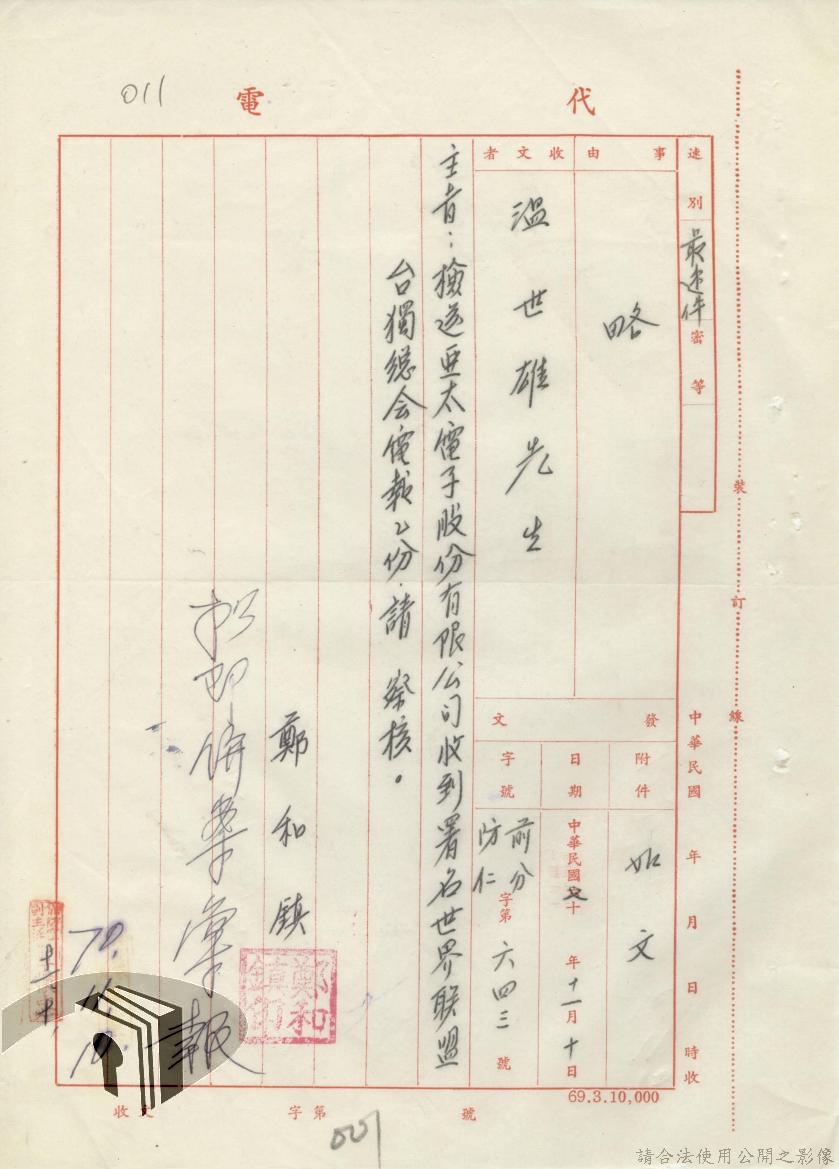 011
代電
速別 最速件
密等
中華民國 年 月 日 時收
事由 略
收文者 溫世雄先生
發文
附件 如文
日期 中華民國七十年十一月十日
字號 前分防仁字第六四三號
主旨：檢送亞太電子股份有限公司收到署名世界聯盟
台獨總会電報乙份，請 察核。
鄭和鎮
鄭和鎮印
彙報
70.11.10.
收文 字第 號
69.3.10,000
裝訂線
請合法使用公開之影像